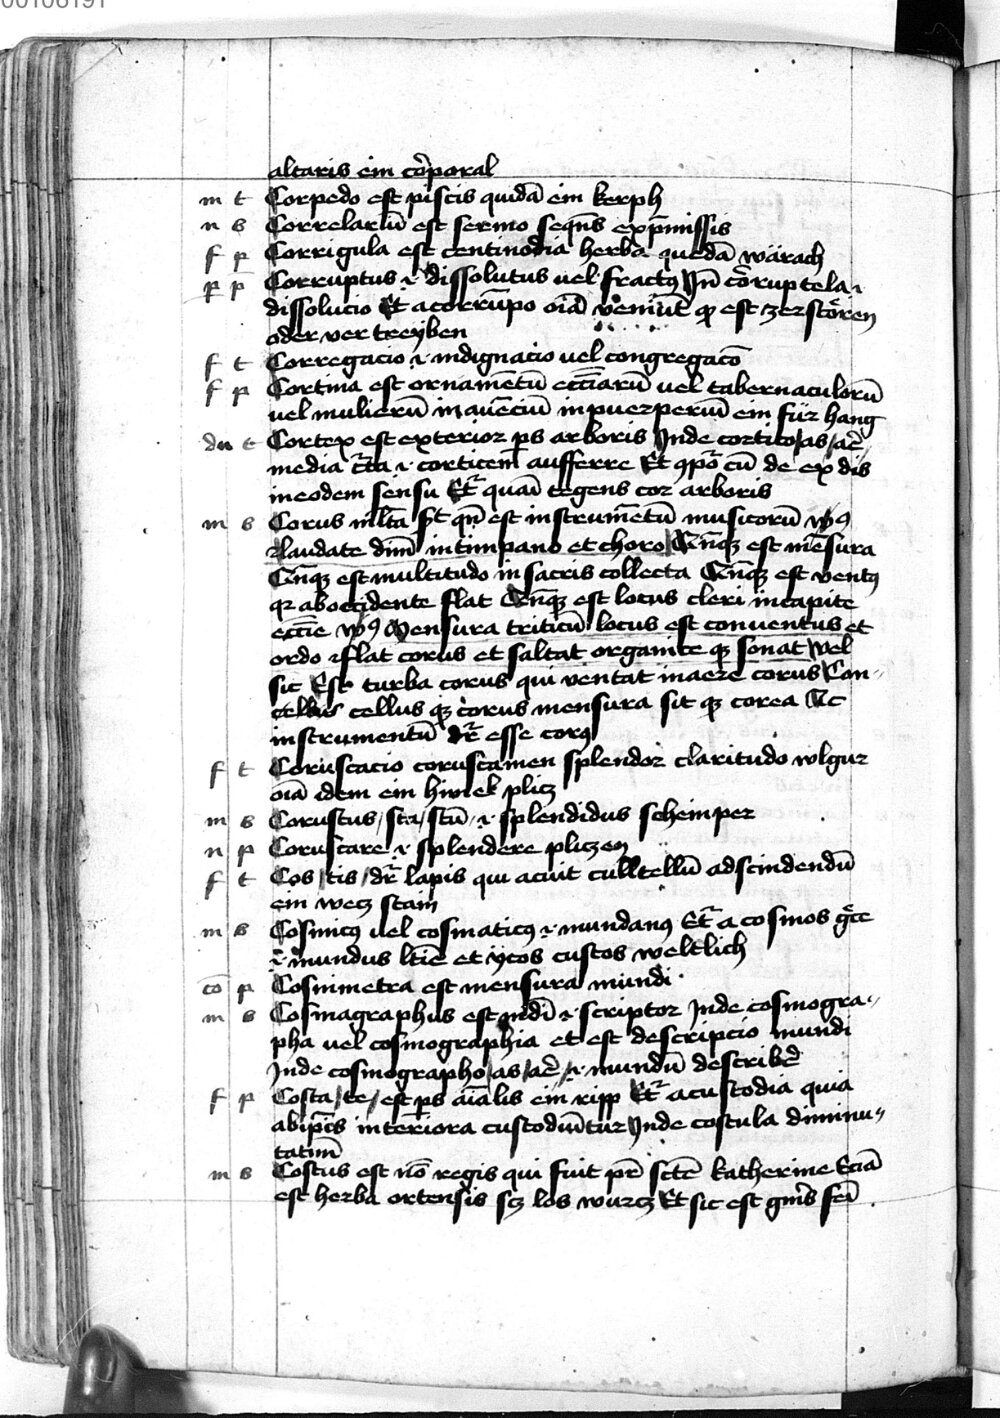 00106191
altaris ein cor̄poral
m t Corpedo est piscis quidā ein kerph
n s Correlariū est sermo seqn̄s exp̄missis
f p Corrigula est centinodia herba quedā wärach
p p Corruptus .i. dissolutus uel fractꝰ Jn̄ cor̄ruptela .i.
dissolucio Et a corrūpo oīā veniūt qd est zerstören
oder ver treyben
f t Corregacio .i. indignacio uel congregacō
f p Cortina est ornamētū eccīarū uel tabernaculorū
uel mulierū in auenciū in puerperiū ein für hang
du t Cortex est exterior ps arboris Jnde cortico/as/ac̄/
media cr̄ta .i. corticem aufferre Et 9pō cū de ex dis
in eodem sensu Et̄ quasi tegens cor arboris
m s Corus ml̄ta st̄ qn̄ est instrumētū musicorū vꝰ
laudate dūm in timpano et choro Qn̄q est mēsura
Qn̄q est multitudo in sacris collecta Qn̄q est ventꝰ
qr ab occidente flat Qn̄q est locus cleri in capite
ecc̄ie vꝰ Mensura triticū locus est conuentus et
ordo flat corus et saltat organice q sonat Vel
sic Est turba corus qui ventat in aere corus Con-
cellus q corus mensura sit q corea Ac
instrumentū dr̄ esse corꝰ
f t Coruscacio coruscamen splendor claritudo wlgur
oīā idem ein himek plicz
m s Coruscus/sca/scū/ .i. splendidus scheinper
n p Coruscare .i. splendere pliczen
f t Cos/tis/dr̄ lapis qui acuit cultellū ad scindendū
ein wecz stain
m s Cosmicꝰ uel cosmaticꝰ .i. mundanꝰ Et̄ a cosmos gr̄ce
.i. mundus lt̄ie et ycos custos weltlich
cō p Cosmimetra est mensura mundi
m s Cosmagraphus est mdī .i. scriptor Jnde cosmogra-
pha uel cosmographia et est descripcio mundi
Jnde cosmographo/as/ac̄/ .i. mundū describe͛
f p Costa/te/est ps aīalis ein ripp Et̄ a custodia quia
ab ip̄is interiora custodiūtur Jnde costula diminu-
tatiū
m s Costus est nō regis qui fuit pr̄ sct̄e katherine Eciā
est herba ortensis sz los wurcz Et sic est gn̄is fei